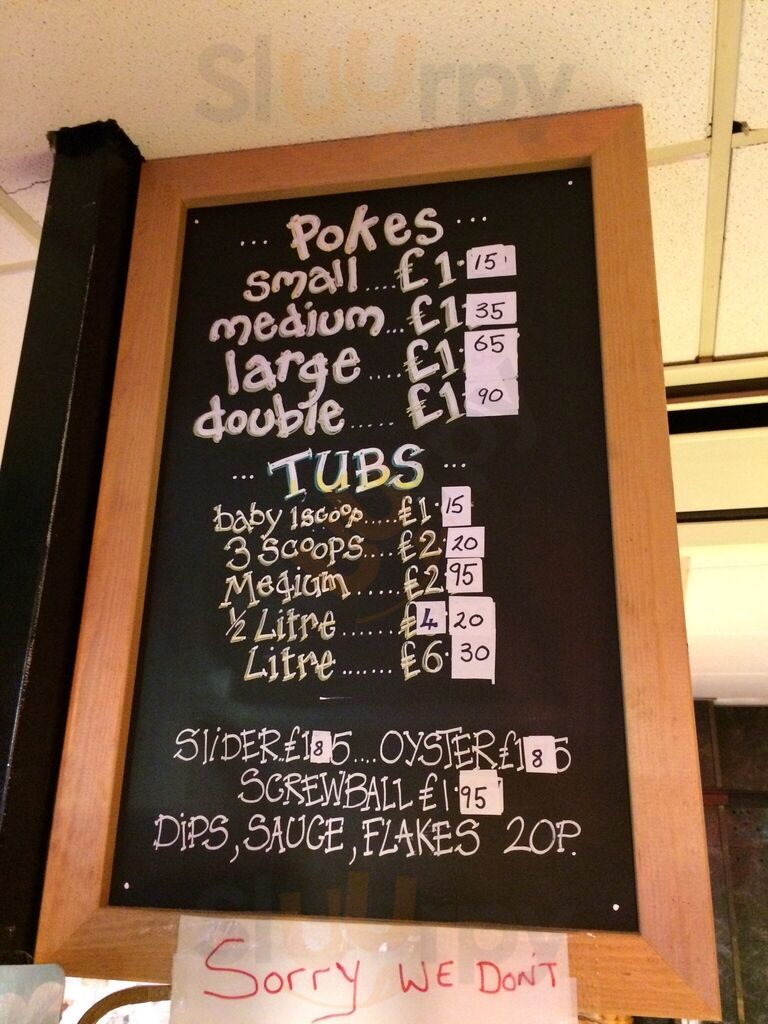 Sluurpy
... Pokes ...
small....£1.15
medium...£1.35
large....£1.65
double.....£1.90
... TUBS ...
baby 1scoop.....£1.15
3 Scoops....£2.20
Medium.....£2.95
½ Litre......£4.20
Litre......£6.30
SLiDER..£185....OYSTER£185
SCREWBALL £1.95
DiPS, SAUCE, FLAKES 20P.
Sluurpy
Sorry WE DON'T